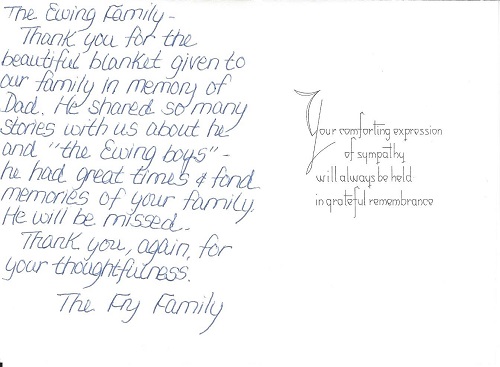 The Ewing Family -
Thank you for the
beautiful blanket given to
our family in memory of
Dad. He shared so many
stories with us about he
and "the Ewing boys" -
he had great times & fond
memories of your family.
He will be missed.
Thank you, again, for
your thoughtfulness.
The Fry Family
Your comforting expression
of sympathy
will always be held
in grateful remembrance